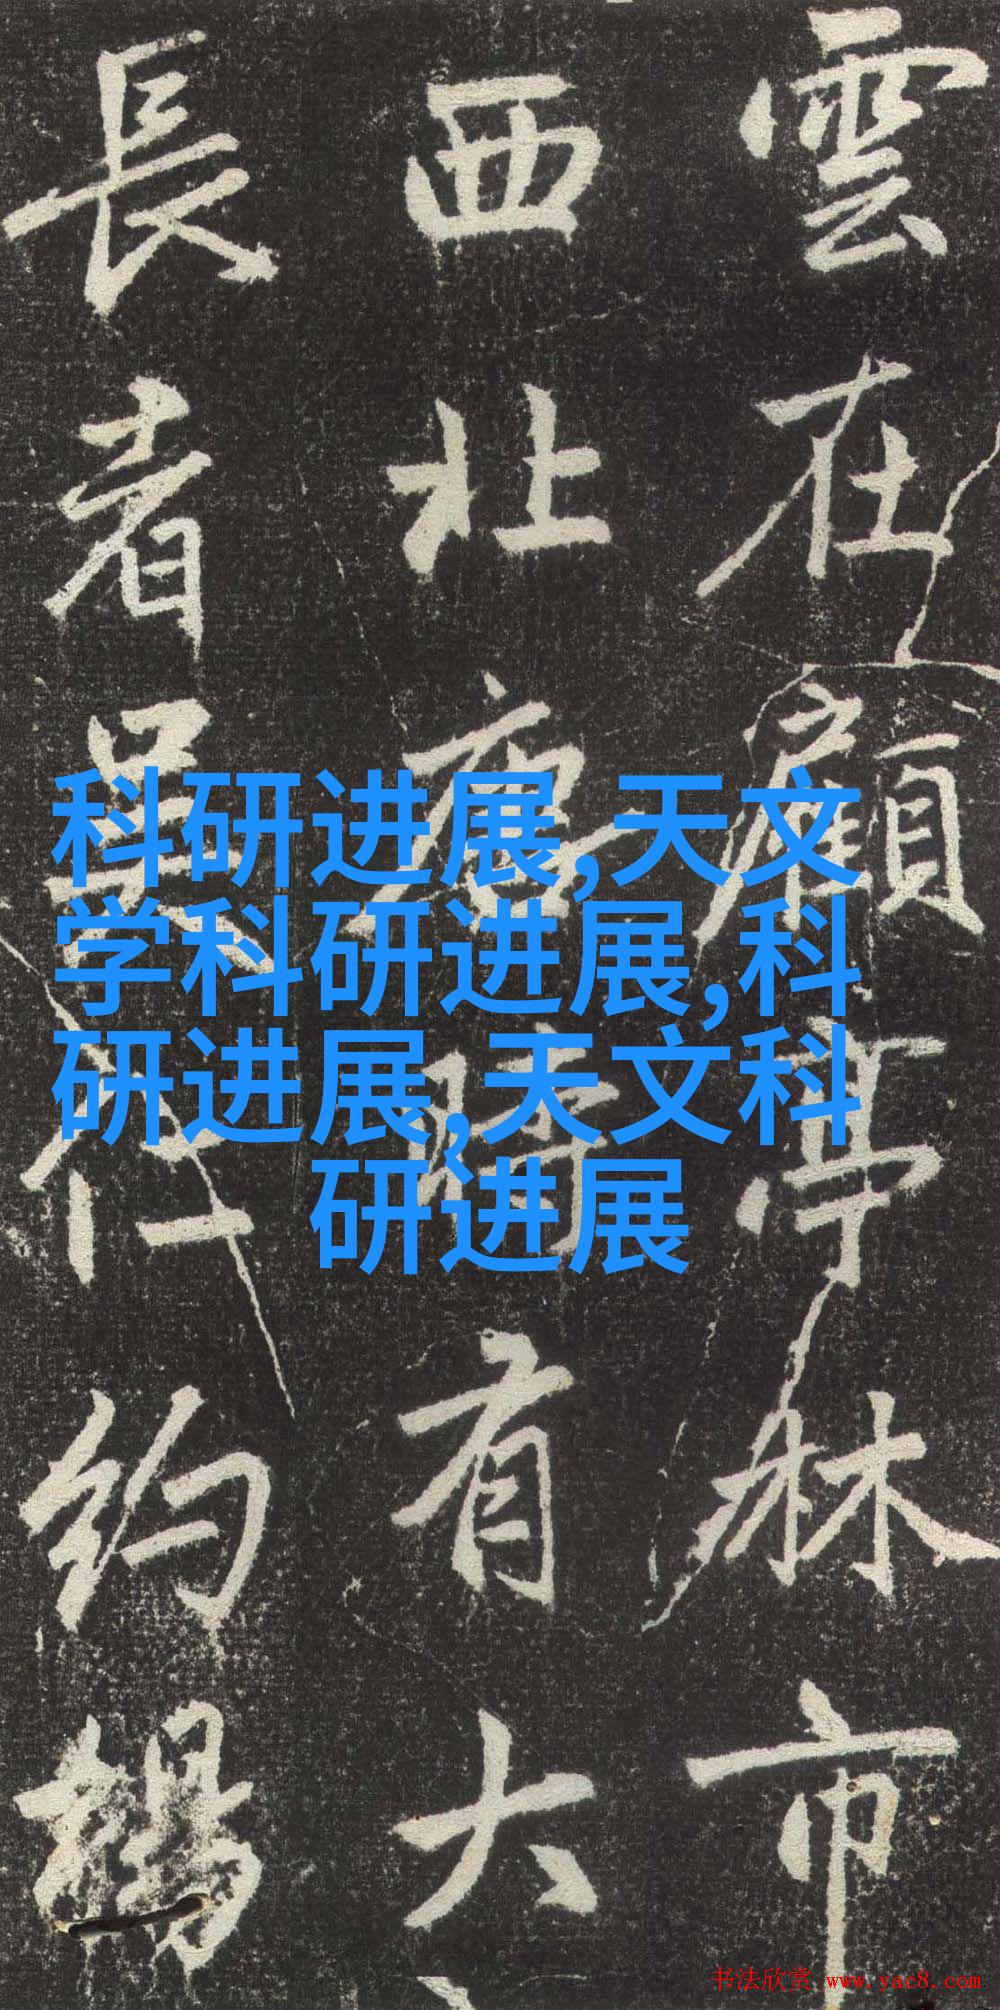 雲在顧亭林市
西北廢時有大
長者吳仁約
科研进展,天文
学科研进展,科
研进展,天文科
研进展
书法欣赏 www.yac8.com